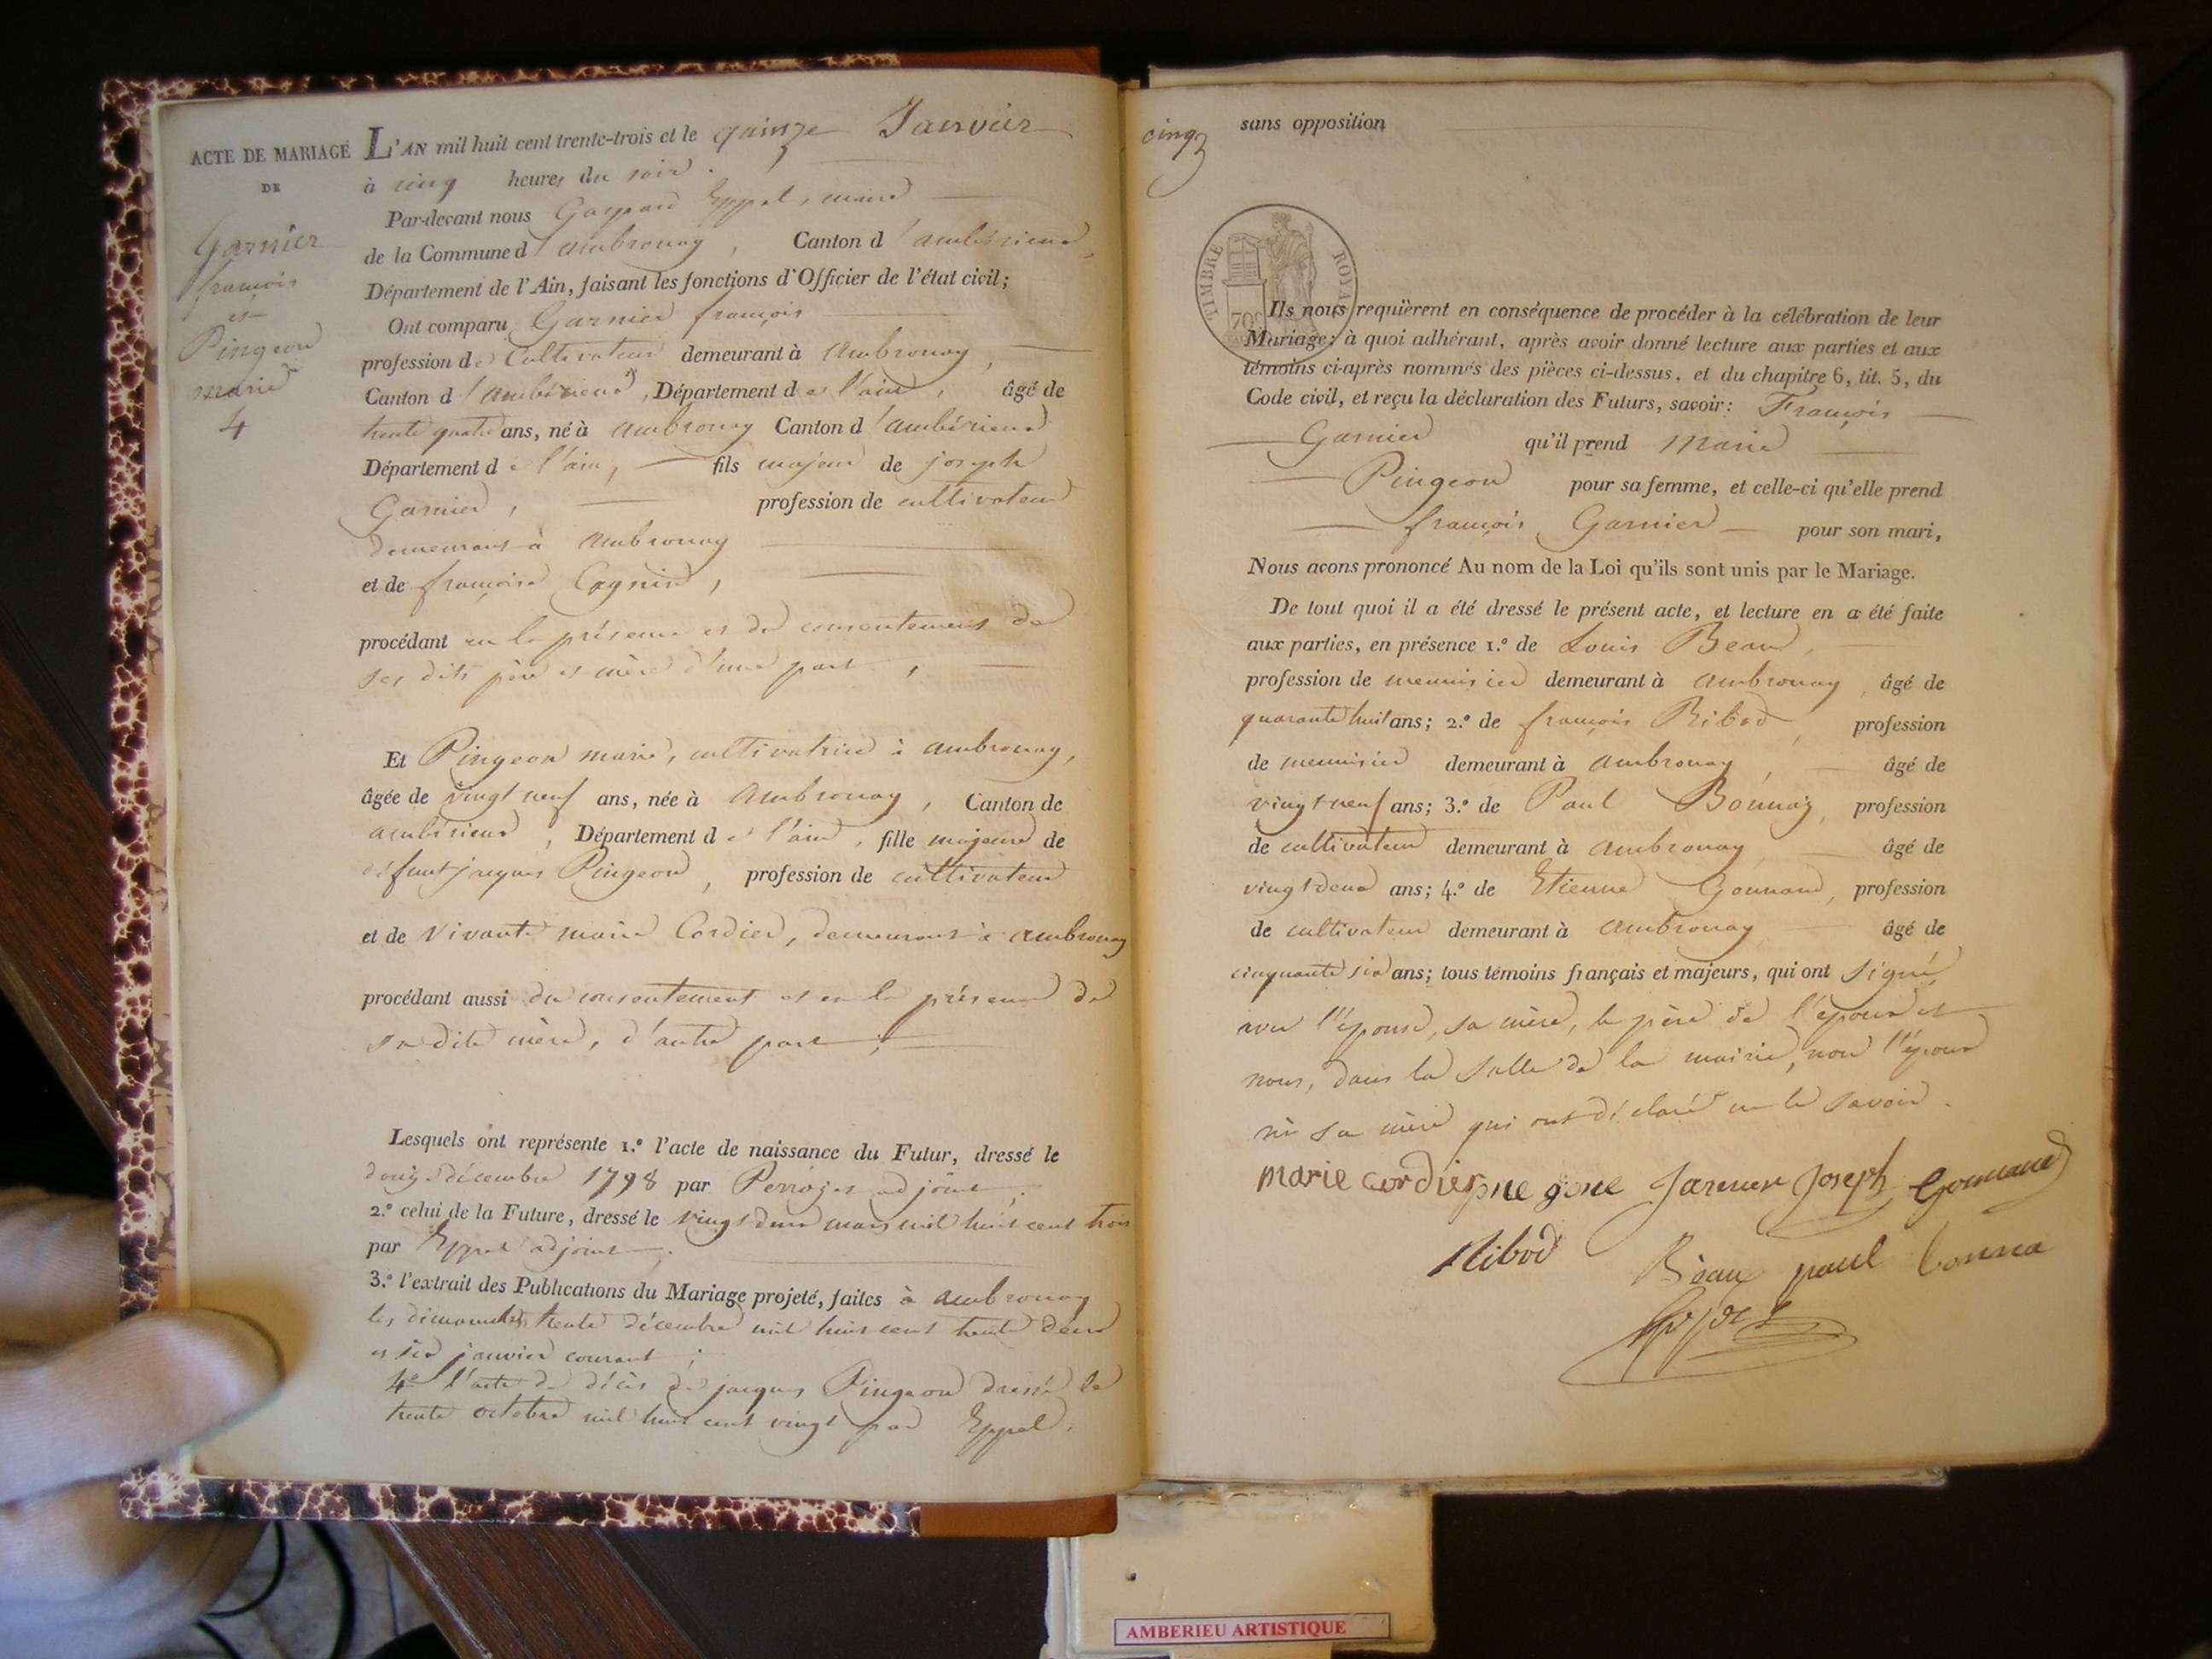 ACTE DE MARIAGE
DE
Garnier
françois
et
Pingeon
marie
4
L'AN mil huit cent trente-trois et le quinze Janvier
à cinq heures du soir.
Par-devant nous Gaspard Eppel, maire
de la Commune d'ambronay, Canton d'ambérieux,
Département de l'Ain, faisant les fonctions d'Officier de l'état civil;
Ont comparu Garnier françois
profession de Cultivateur demeurant à Ambronay,
Canton d'ambérieux, Département de l'ain, âgé de
trente quatre ans, né à Ambronay Canton d'ambérieux
Département de l'ain, fils majeur de joseph
Garnier, profession de cultivateur
demeurant à Ambronay
et de françoise Cagnin,
procédant en la présence et du consentement de
ses dits père et mère d'une part,
Et Pingeon marie, cultivatrice à ambronay,
âgée de vingt neuf ans, née à Ambronay, Canton de
ambérieux, Département de l'ain, fille majeure de
défunt jacques Pingeon, profession de cultivateur
et de vivante marie Cordier, demeurant à ambronay
procédant aussi du consentement et en la présence de
sa dite mère, d'autre part;
Lesquels ont représenté 1.º l'acte de naissance du Futur, dressé le
décembre 1798 par adjoint;
2.º celui de la Future, dressé le vingt deux mars mil huit cent trois
par Eppel adjoint.
3.º l'extrait des Publications du Mariage projeté, faites à ambronay
les dimanches trente décembre mil huit cent trente deux
et six janvier courant;
4º l'acte de décès de jacques Pingeon dressé le
trente octobre mil huit cent vingt par Eppel.
cinq
sans opposition
TIMBRE ROYAL
70c
Ils nous requièrent en conséquence de procéder à la célébration de leur
Mariage; à quoi adhérant, après avoir donné lecture aux parties et aux
témoins ci-après nommés des pièces ci-dessus, et du chapitre 6, tit. 5, du
Code civil, et reçu la déclaration des Futurs, savoir: François
Garnier qu'il prend Marie
Pingeon pour sa femme, et celle-ci qu'elle prend
françois Garnier pour son mari,
Nous avons prononcé Au nom de la Loi qu'ils sont unis par le Mariage.
De tout quoi il a été dressé le présent acte, et lecture en a été faite
aux parties, en présence 1.º de Louis Beau,
profession de menuisier demeurant à Ambronay, âgé de
quarante huit ans; 2.º de françois Ribod, profession
de menuisier demeurant à Ambronay, âgé de
vingt neuf ans; 3.º de Paul Bonnaz, profession
de cultivateur demeurant à Ambronay, âgé de
vingt deux ans; 4.º de Etienne Gounand, profession
de cultivateur demeurant à Ambronay âgé de
cinquante six ans; tous témoins français et majeurs, qui ont signé
avec l'épouse, sa mère, le père de l'époux et
nous, dans la salle de la mairie, non l'époux
ni sa mère qui ont déclaré ne le savoir.
marie cordier Joseph Gounand
Ribod Béaux paul bonna
Eppel
AMBERIEU ARTISTIQUE